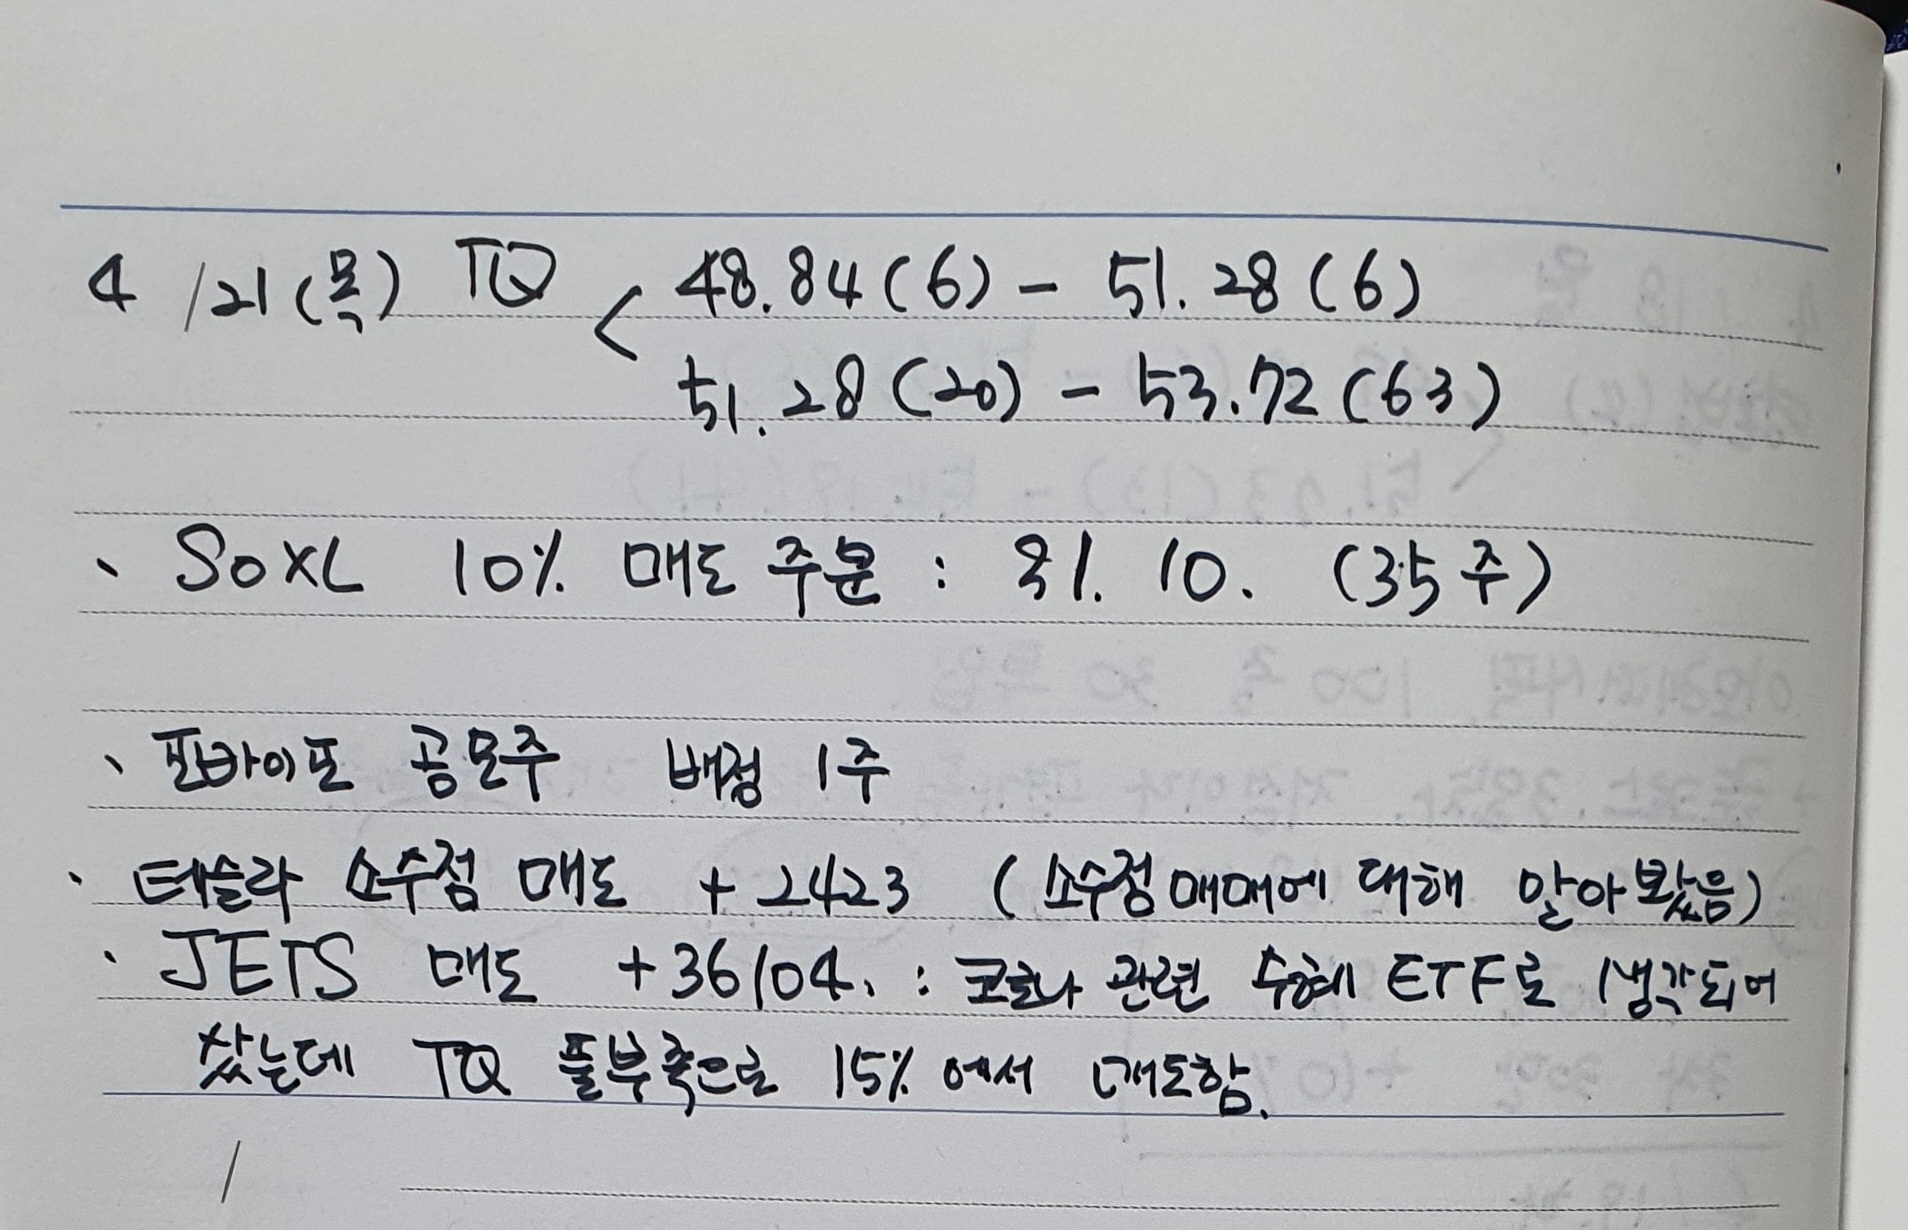 4/21(목) TQ < 48.84(6) - 51.28(6)
51.28(20) - 53.72(63)
、 SOXL 10% 매도 주문 : 31.10. (35주)
、 포바이포 공모주 배정 1주
· 테슬라 소수점 매도 +2423 (소수점 매매에 대해 알아봤음)
· JETS 매도 +36104. : 코로나 관련 수혜 ETF로 생각되어
샀는데 TQ 풀부족으로 15%에서 매도함.
/